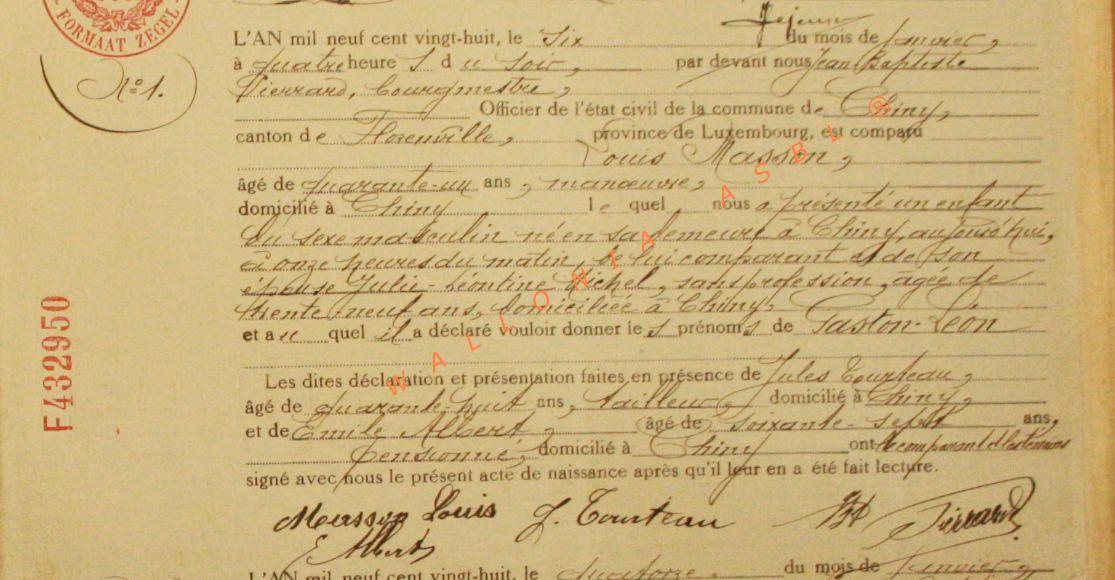 FORMAAT ZEGEL
L'AN mil neuf cent vingt-huit, le six du mois de Janvier,
N° 1.
à quatre heures du soir, par devant nous Jean-Baptiste
Pierrard, bourgmestre,
Officier de l'état civil de la commune de Chiny,
canton de Florenville, province de Luxembourg, est comparu
Louis Masson,
âgé de quarante-un ans, manœuvre,
domicilié à Chiny lequel nous a présenté un enfant
du sexe masculin né en sa demeure à Chiny, aujourd'hui,
à onze heures du matin, de lui comparant et de son
épouse Julie-Léontine Michel, sans profession, agée de
trente-neuf ans, domiciliée à Chiny,
et au quel il a déclaré vouloir donner les prénoms de Gaston-Léon
Les dites déclaration et présentation faites en présence de Jules Tourteau,
âgé de quarante-huit ans, tailleur, domicilié à Chiny,
et de Emile Albert, âgé de soixante-sept ans,
pensionné, domicilié à Chiny ont le comparant et les témoins
signé avec nous le présent acte de naissance après qu'il leur en a été fait lecture.
Masson Louis J. Tourteau Pierrard
E Albert
L'AN mil neuf cent vingt-huit, le quatorze du mois de Janvier
F432950
WALLONIA ASBL ®